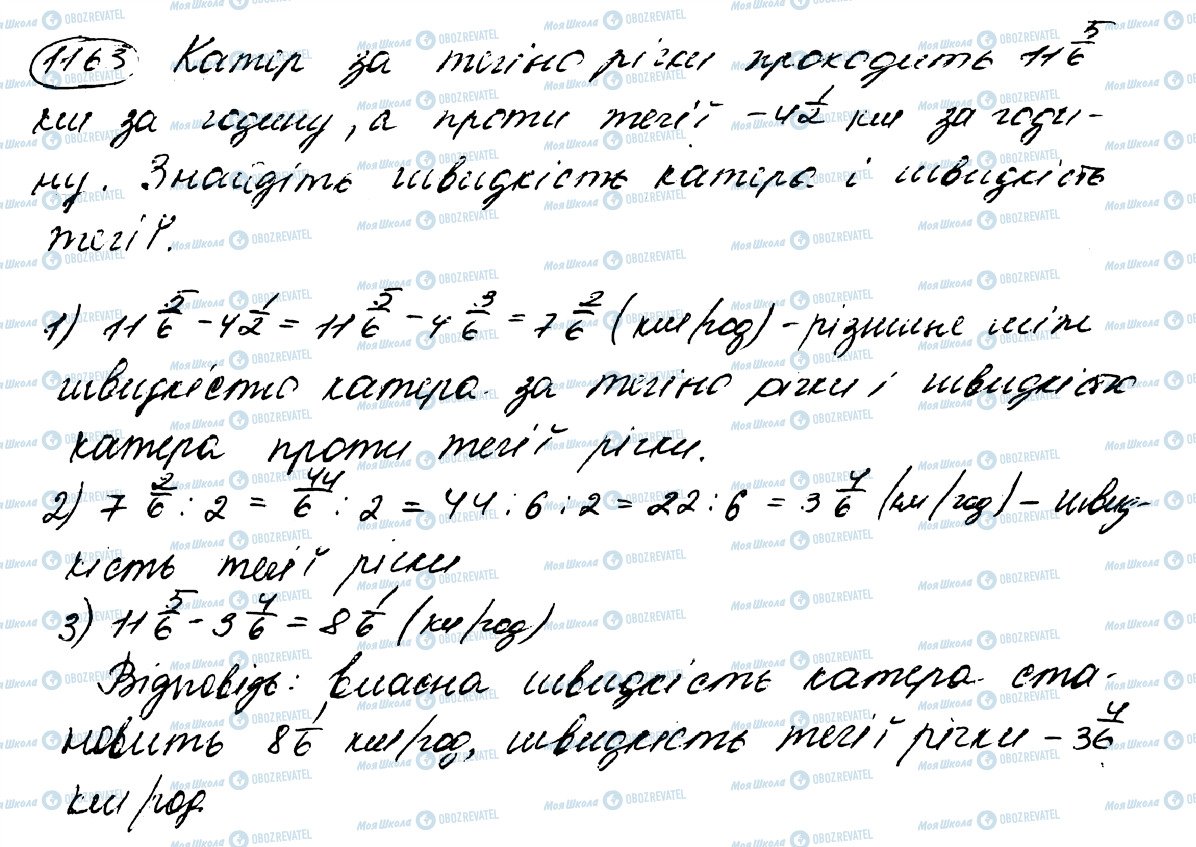 1163 Катер за течією річки проходить 11 5/6
км за годину, а проти течії – 4 1/2 км за годи-
ну. Знайдіть швидкість катера і швидкість
течії.
1) 11 5/6 - 4 1/2 = 11 5/6 - 4 3/6 = 7 2/6 (км/год) - різниця між
швидкістю катера за течією річки і швидкістю
катера проти течії річки.
2) 7 2/6 : 2 = 44/6 : 2 = 44 : 6 : 2 = 22 : 6 = 3 4/6 (км/год) - швид-
кість течії річки
3) 11 5/6 - 3 4/6 = 8 1/6 (км/год)
Відповідь: власна швидкість катера ста-
новить 8 1/6 км/год, швидкість течії річки – 3 4/6
км/год.
МояШкола OBOZREVATEL